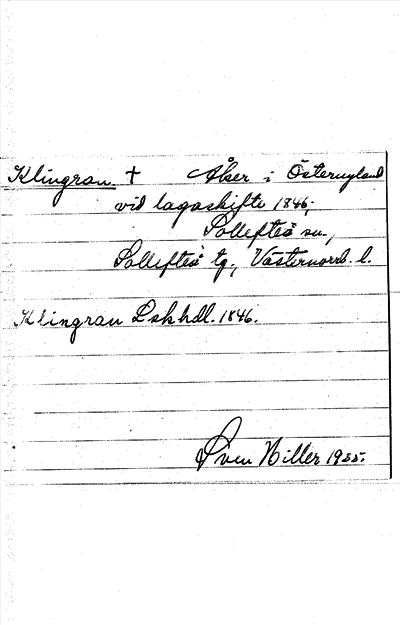 Klingran † Åker i Östernyland
vid lagaskifte 1846;
Sollefteå sn.,
Sollefteå tg., Västernorrl. l.
Klingran Lskhdl. 1846.
Sven Hiller 1935.